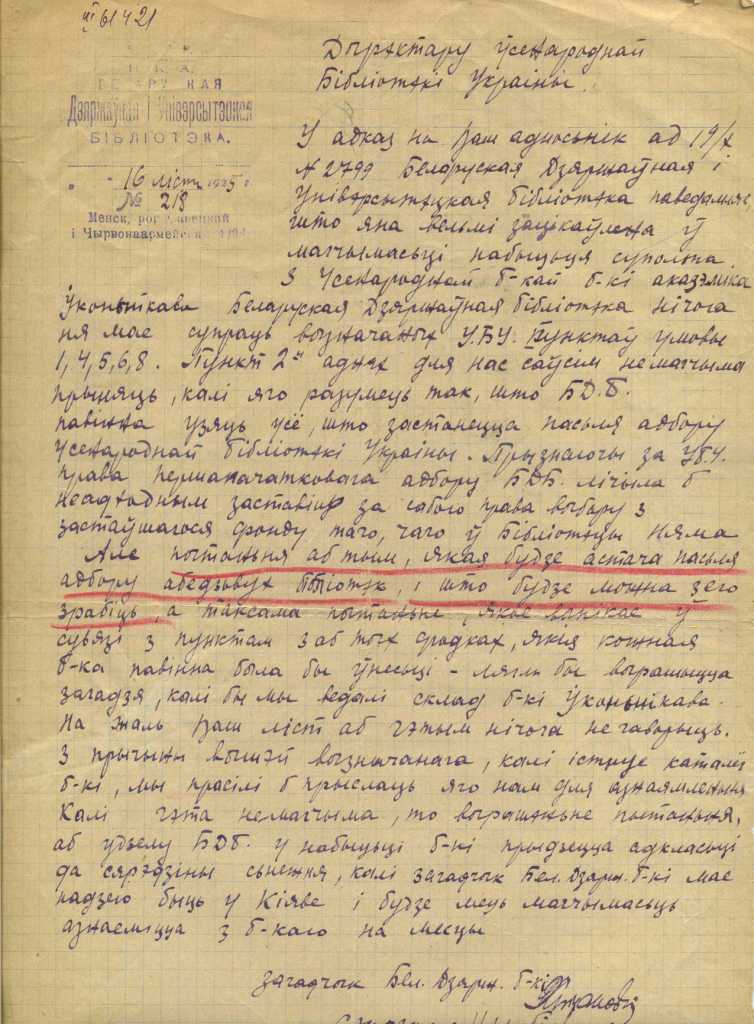 Дырэктару ўсенароднай
Бібліотэкі Украіны.
БЕЛАРУСКАЯ
Дзяржаўная і Унівэрсытэцкая
БІБЛІОТЭКА.
16 ліст 1925 г.
№ 218
Менск, рог
і Чырвонаармейск
У адказ на Ваш адносьнік ад 19/X
№ 2799 Беларуская Дзяржаўная і
Унівэрсытэцкая бібліотэка паведамляе
што яна вельмі зацікаўлена ў
магчымасьці набыцьця супольна
з Усенароднай б-кай б-кі акадэміка
Іконьнікава. Беларуская Дзяржаўная бібліотэка нічога
ня мае супраць вызначаных У.Б.У. пунктаў умовы
1, 4, 5, 6, 8. Пункт 2-і аднак для нас саўсім немагчыма
прыняць, калі яго разумець так, што Б.Д.Б.
павінна узяць ўсё, што застанецца пасьля адбору
Усенароднай бібліотэкі Украіны. Прызнаючы за УБУ.
права першапачатковага адбору БДБ. лічыла б
неабходным заставіць за сабою права выбору з
застаўшагося фонду таго, чаго ў бібліотэцы няма
Але пытаньня аб тым, якая будзе астача пасьля
адбору абедзьвух бібліотэк, і што будзе можна з его
зрабіць, а таксама пытаньне, якое ванікае ў
сувязі з пунктам 3 аб тых сродках, якія кожная
б-ка павінна была бы ўнесьці - маглі бы вырашыцца
загадзя, калі бы мы ведалі склад б-кі Іконьнікава.
На жаль Ваш ліст аб гэтым нічога не гаворыць.
З прычыны вышэй вызначанага, калі існуе каталёг
б-кі, мы прасілі б прыслаць яго нам для азнаямленьня
Калі гэта немагчыма, то вырашэньне пытаньня,
аб удзелу БДБ. у набыцьці б-кі прыдзецца адкласьці
да сярэдзіны сьнежня, калі загадчык Бел. Дзярж. б-кі мае
надзею быць у Кіяве і будзе мець магчымасьць
азнаеміцца з б-каю на месцы
Загадчык Бел. Дзярж. б-кі